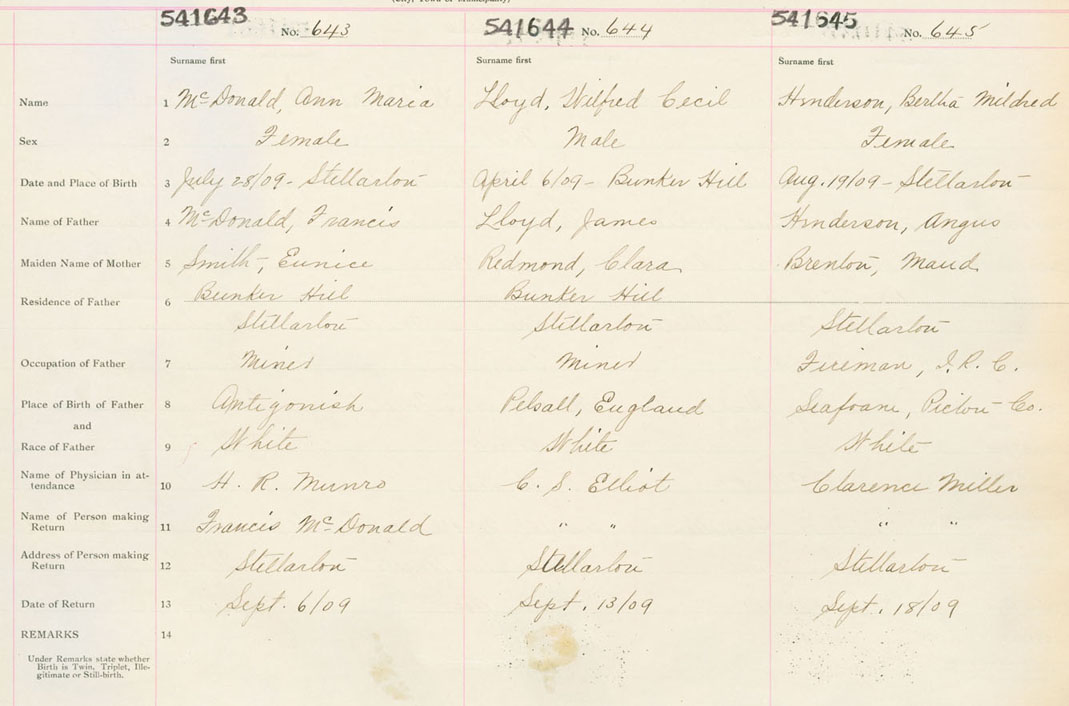 (City, Town or Municipality)
541643 No. 643 541644 No. 644 541645 No. 645
Surname first Surname first Surname first
Name 1 McDonald, Ann Maria Lloyd, Wilfred Cecil Henderson, Bertha Mildred
Sex 2 Female Male Female
Date and Place of Birth 3 July 28/09 - Stellarton April 6/09 - Bunker Hill Aug. 19/09 - Stellarton
Name of Father 4 McDonald, Francis Lloyd, James Henderson, Angus
Maiden Name of Mother 5 Smith, Eunice Redmond, Clara Brenton, Maud
Residence of Father 6 Bunker Hill Bunker Hill
Stellarton Stellarton Stellarton
Occupation of Father 7 Miner Miner Fireman, I. R. C.
Place of Birth of Father 8 Antigonish Pelsall, England Seafoam, Pictou Co.
and
Race of Father 9 White White White
Name of Physician in at-
tendance 10 H. R. Munro C. S. Elliot Clarence Miller
Name of Person making
Return 11 Francis McDonald " " " "
Address of Person making
Return 12 Stellarton Stellarton Stellarton
Date of Return 13 Sept. 6/09 Sept. 13/09 Sept. 18/09
REMARKS 14
Under Remarks state whether
Birth is Twin, Triplet, Ille-
gitimate or Still-birth.